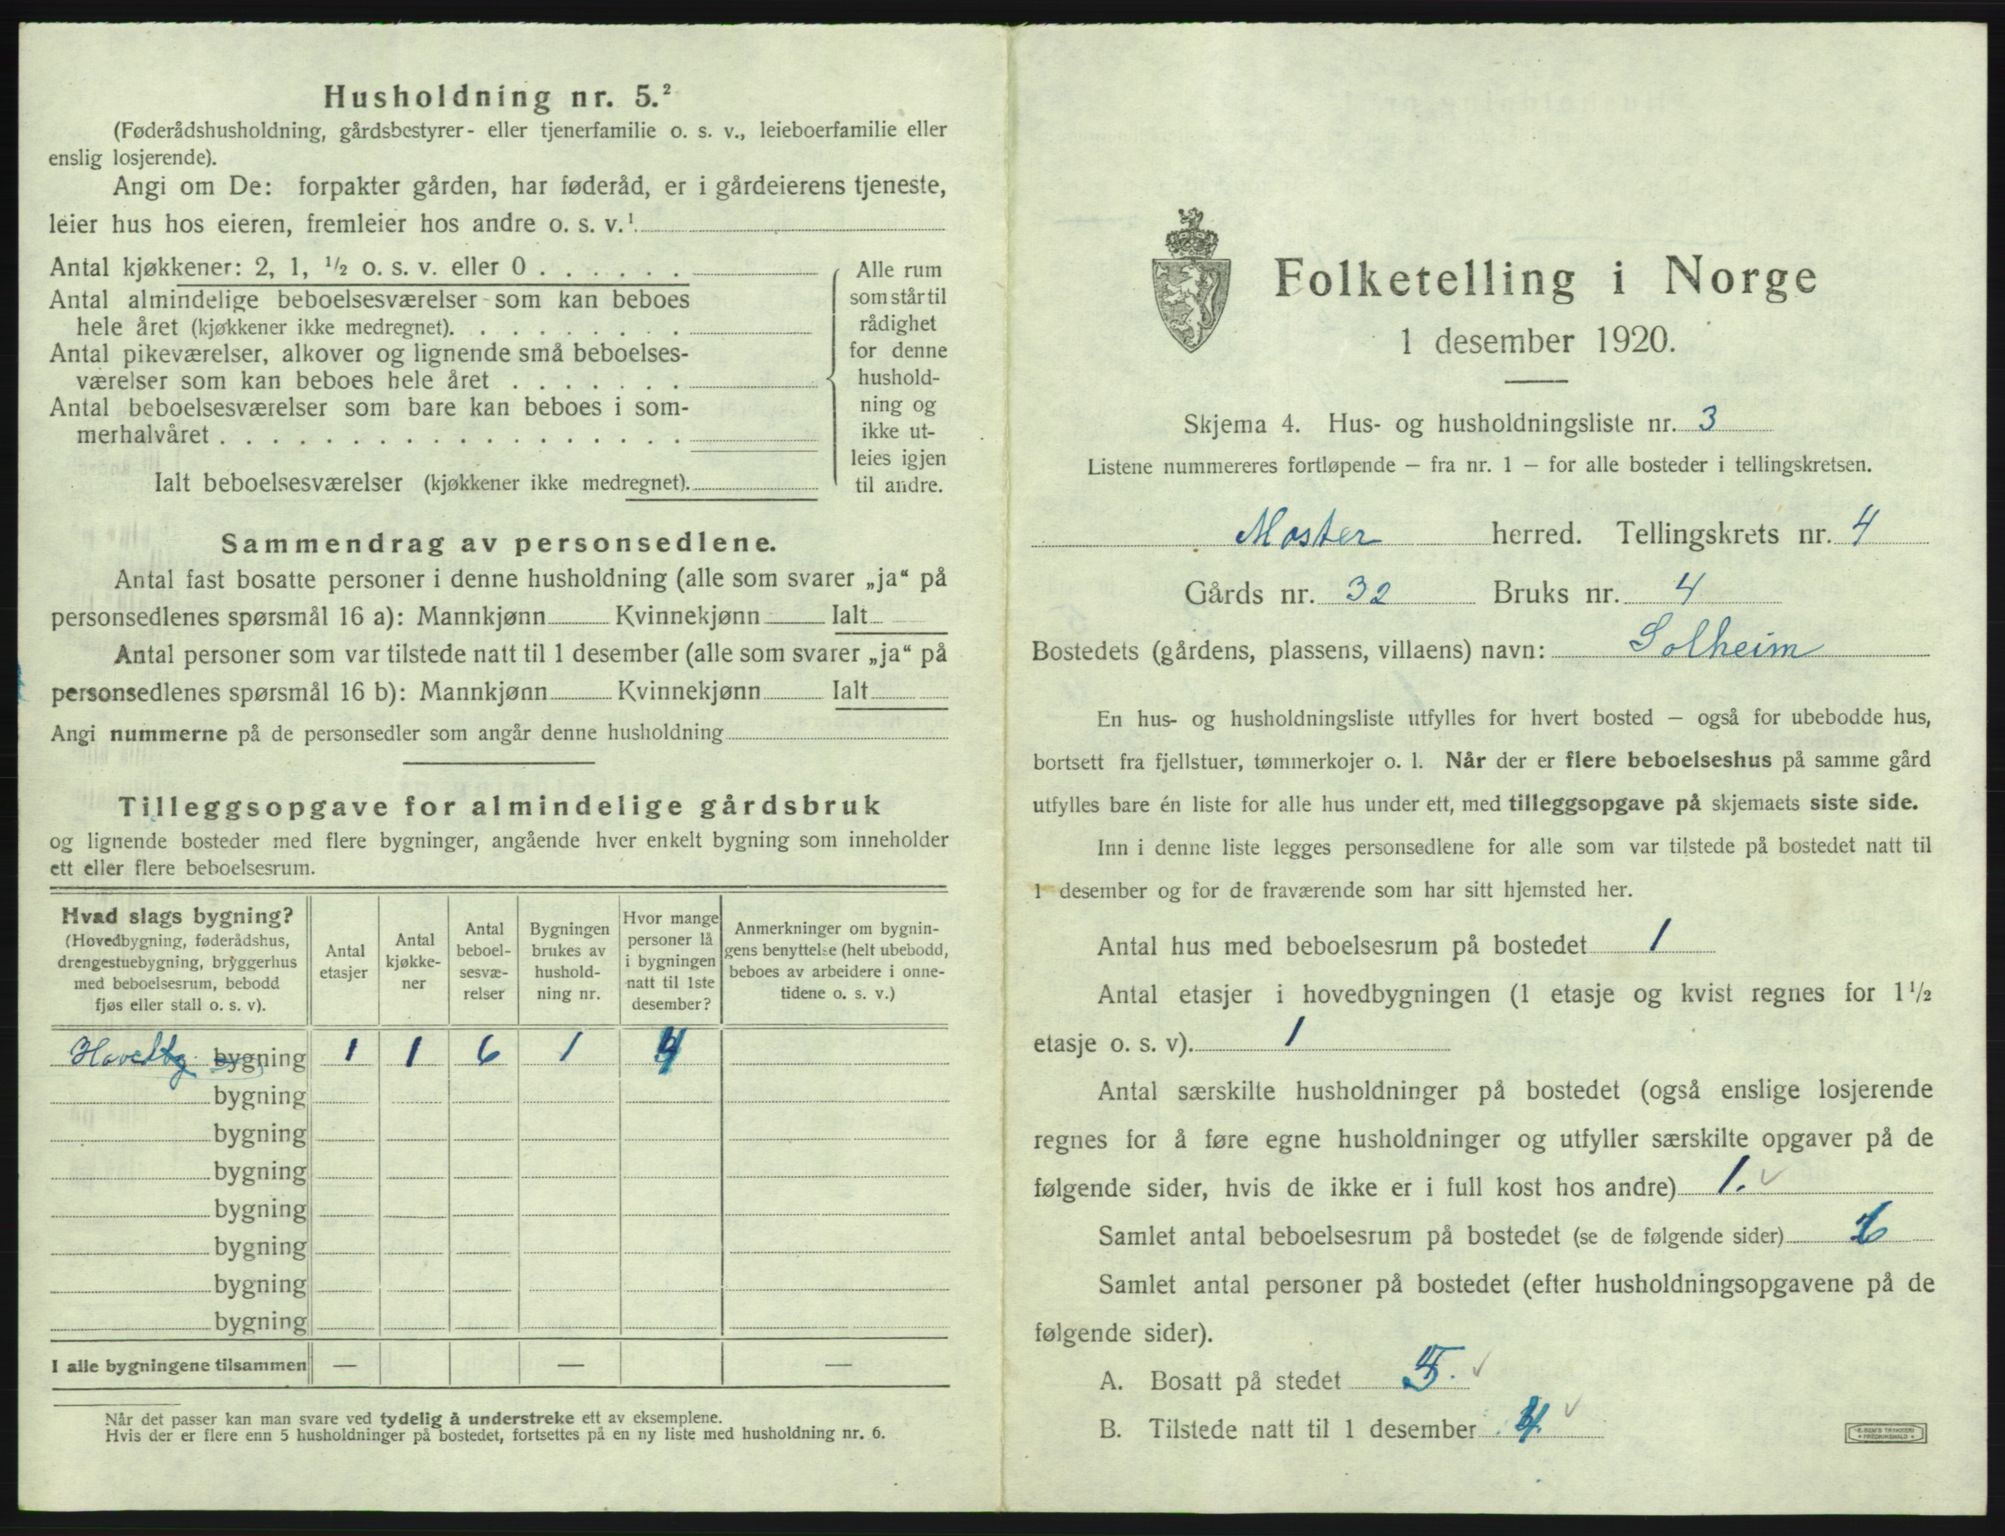 Husholdning nr. 5.²
(Føderådshusholdning, gårdsbestyrer- eller tjenerfamilie o. s. v., leieboerfamilie eller
enslig losjerende).
Angi om De: forpakter gården, har føderåd, er i gårdeierens tjeneste,
leier hus hos eieren, fremleier hos andre o. s. v.¹
Antal kjøkkener: 2, 1, ½ o. s. v. eller 0 . . . . . .
Antal almindelige beboelsesværelser som kan beboes
hele året (kjøkkener ikke medregnet). . . . . . . . .
Antal pikeværelser, alkover og lignende små beboelses-
værelser som kan beboes hele året . . . . . . .
Antal beboelsesværelser som bare kan beboes i som-
merhalvåret . . . . . . . . . . . . . . . . . .
Ialt beboelsesværelser (kjøkkener ikke medregnet).
Alle rum
som står til
rådighet
for denne
hushold-
ning og
ikke ut-
leies igjen
til andre.
Sammendrag av personsedlene.
Antal fast bosatte personer i denne husholdning (alle som svarer „ja“ på
personsedlenes spørsmål 16 a): Mannkjønn Kvinnekjønn Ialt
Antal personer som var tilstede natt til 1 desember (alle som svarer „ja“ på
personsedlenes spørsmål 16 b): Mannkjønn Kvinnekjønn Ialt
Angi nummerne på de personsedler som angår denne husholdning
Tilleggsopgave for almindelige gårdsbruk
og lignende bosteder med flere bygninger, angående hver enkelt bygning som inneholder
ett eller flere beboelsesrum.
Hvad slags bygning?
(Hovedbygning, føderådshus,
drengestuebygning, bryggerhus
med beboelsesrum, bebodd
fjøs eller stall o. s. v).
Antal
etasjer
Antal
kjøkke-
ner
Antal
beboel-
sesvæ-
relser
Bygningen
brukes av
hushold-
ning nr.
Hvor mange
personer lå
i bygningen
natt til 1ste
desember?
Anmerkninger om bygnin-
gens benyttelse (helt ubebodd,
beboes av arbeidere i onne-
tidene o. s. v.)
Hovedbg. bygning 1 1 6 1 4
bygning
bygning
bygning
bygning
bygning
bygning
bygning
I alle bygningene tilsammen — — —
Når det passer kan man svare ved tydelig å understreke ett av eksemplene.
Hvis der er flere enn 5 husholdninger på bostedet, fortsettes på en ny liste med husholdning nr. 6.
Folketelling i Norge
1 desember 1920.
Skjema 4. Hus- og husholdningsliste nr. 3
Listene nummereres fortløpende – fra nr. 1 – for alle bosteder i tellingskretsen.
Moster herred. Tellingskrets nr. 4
Gårds nr. 32 Bruks nr. 4
Bostedets (gårdens, plassens, villaens) navn: Solheim
En hus- og husholdningsliste utfylles for hvert bosted – også for ubebodde hus,
bortsett fra fjellstuer, tømmerkojer o. l. Når der er flere beboelseshus på samme gård
utfylles bare én liste for alle hus under ett, med tilleggsopgave på skjemaets siste side.
Inn i denne liste legges personsedlene for alle som var tilstede på bostedet natt til
1 desember og for de fraværende som har sitt hjemsted her.
Antal hus med beboelsesrum på bostedet 1
Antal etasjer i hovedbygningen (1 etasje og kvist regnes for 1½
etasje o. s. v). 1
Antal særskilte husholdninger på bostedet (også enslige losjerende
regnes for å føre egne husholdninger og utfyller særskilte opgaver på de
følgende sider, hvis de ikke er i full kost hos andre) 1. ✓
Samlet antal beboelsesrum på bostedet (se de følgende sider) 6
Samlet antal personer på bostedet (efter husholdningsopgavene på de
følgende sider).
A. Bosatt på stedet 5. ✓
B. Tilstede natt til 1 desember 4. ✓